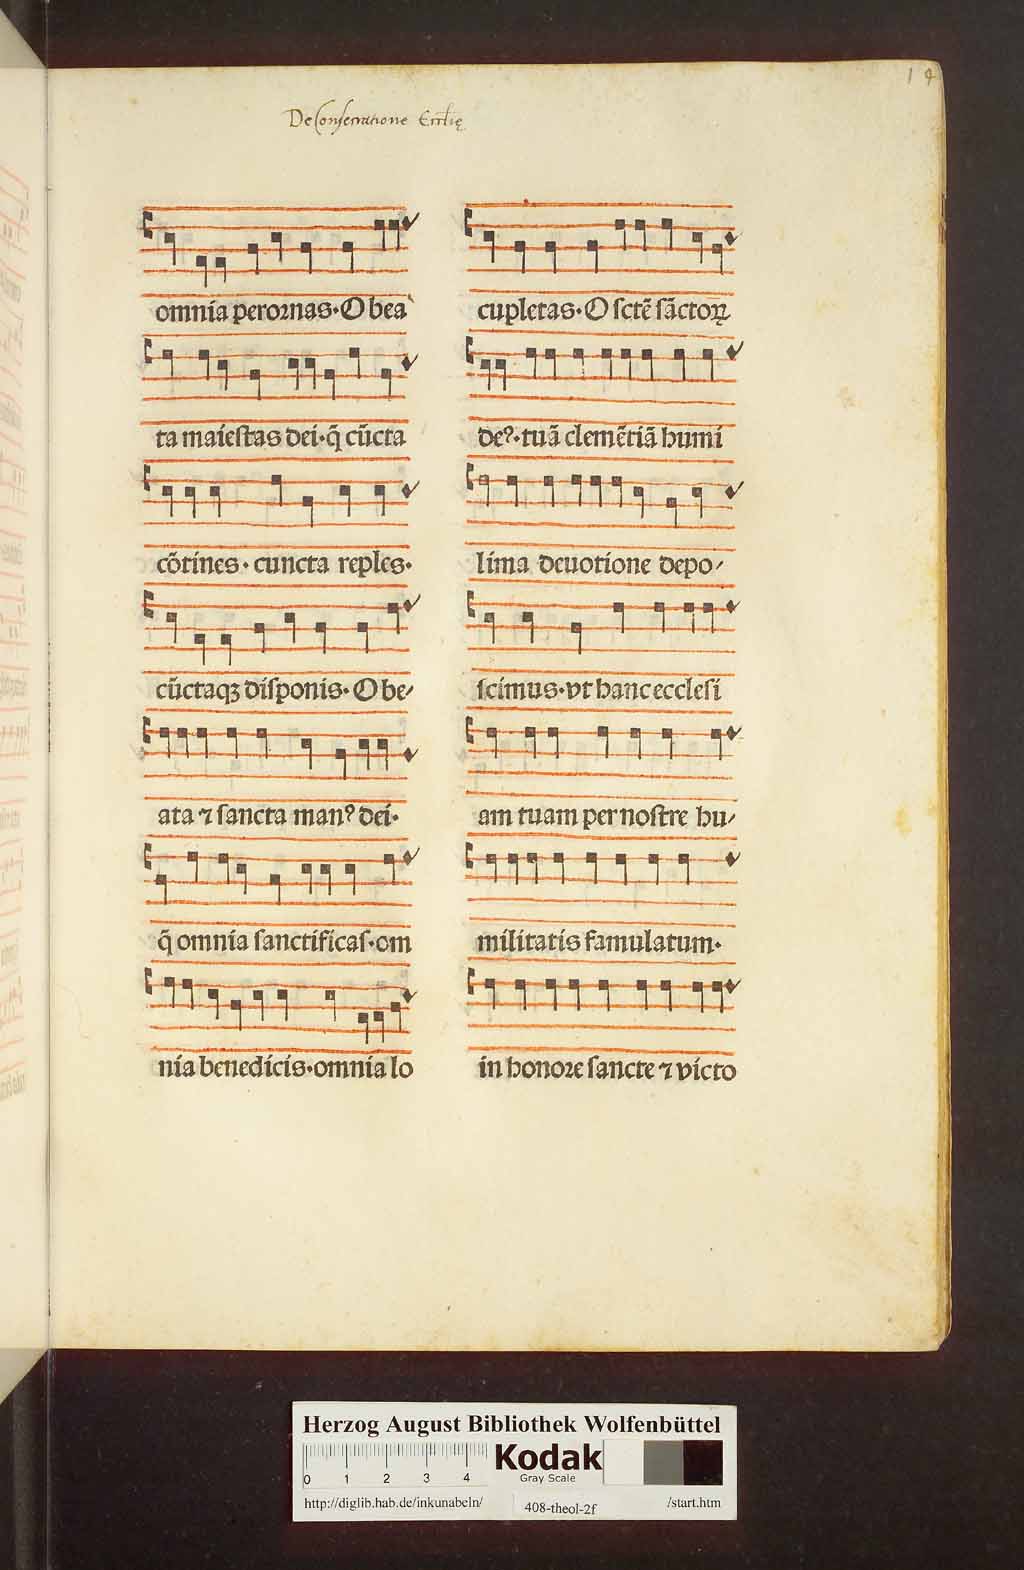 14
De Consecratione Eccl̄ię
omnia perornas·O bea
ta maiestas dei·q̄ cūcta
cōtines·cuncta reples·
cūctaqꝫ disponis·O be⸗
ata ⁊ sancta manꝰ dei·
q̄ omnia sanctificas·om
nia benedicis·omnia lo
cupletas·O sctē sāctoꝝ
deꝰ·tuā clemētiā humi
lima deuotione depo⸗
scimus·vt hanc ecclesi
am tuam per nostre hu⸗
militatis famulatum·
in honore sancte ⁊ victo
Herzog August Bibliothek Wolfenbüttel
0 1 2 3 4
Kodak
Gray Scale
http://diglib.hab.de/inkunabeln/ 408-theol-2f /start.htm